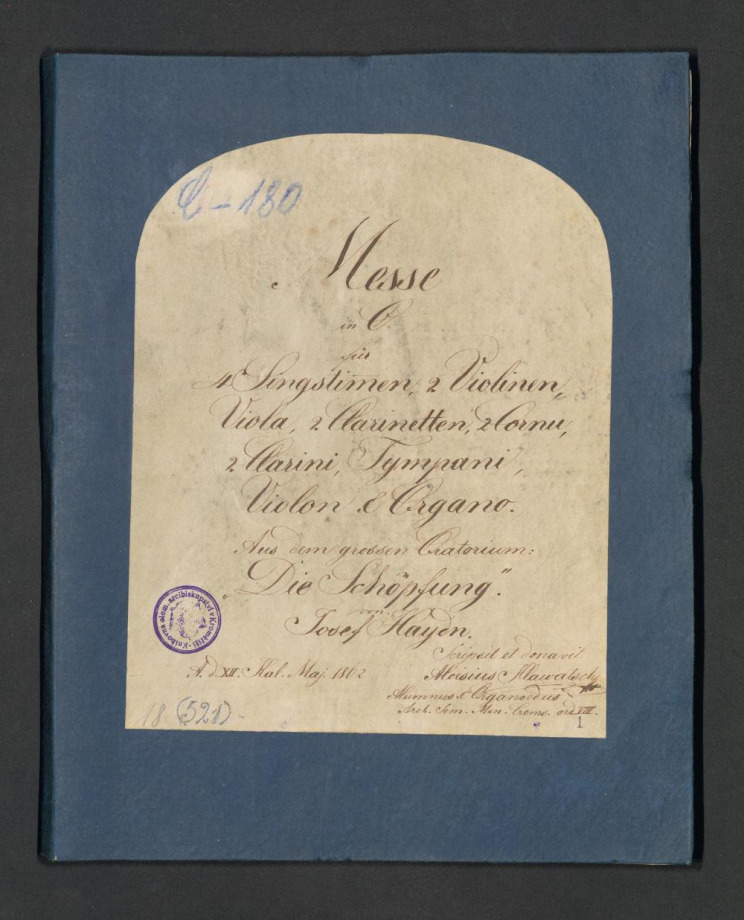 C-180
Messe
in C.
für
4 Singstim̄en, 2 Violinen,
Viola, 2 Clarinetten, 2 Cornu,
2 Clarini, Tympani,
Violon & Organo.
Aus dem grossen Oratorium:
„Die Schöpfung."
von
Josef Haydn.
Knihovna olom. arcibiskupství v Kroměříži
Scripsit et donavit
A. d. XII. Kal. Maj. 1862
Aloisius Hlawatsch
Alumnus & Organoedus
Arch. Sem. Min. Crems. ord. VIII.
18 (521)
1